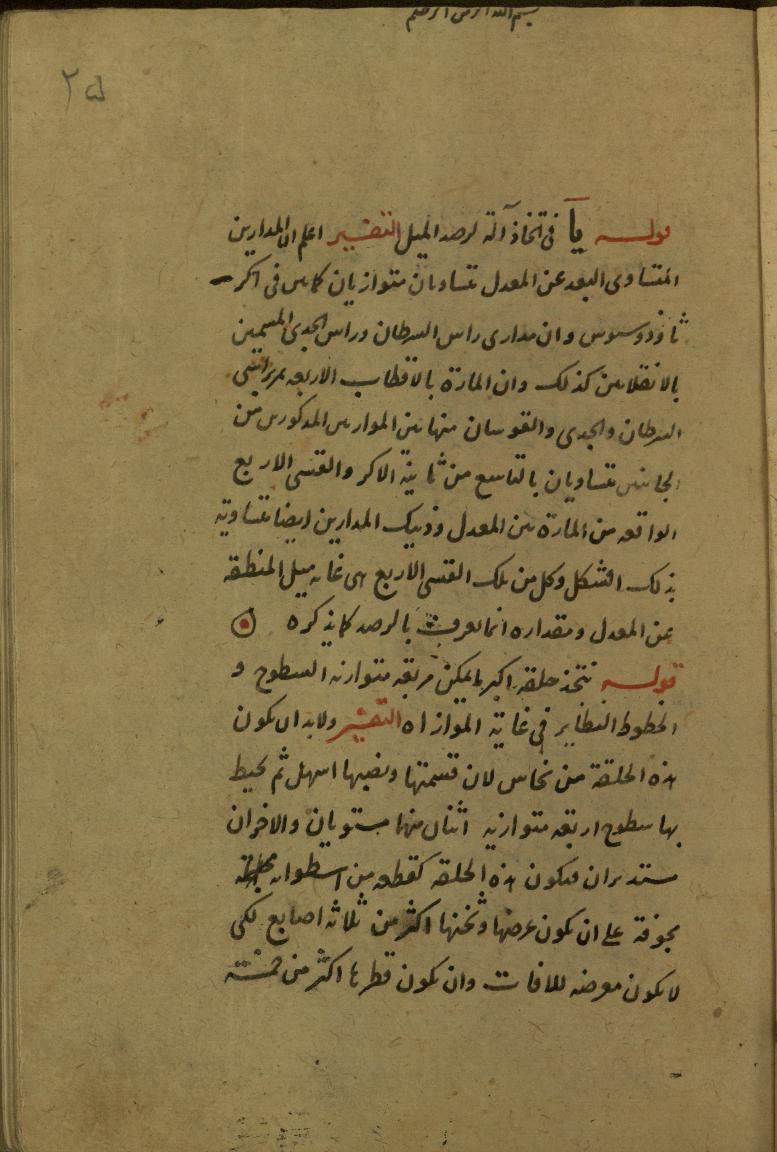 بسم الله الرحمن الرحيم
٢٥
قوله يآ في اتخاذ آلة لرصد الميل التفسير اعلم ان المدارين
المتساوى البعد عن المعدل متساويان متوازيان كما بين فى اكر
ثاوذوسيوس وان مدارى راس السرطان وراس الجدى المسمين
بالانقلابين كذلك وان المارة بالاقطاب الاربعه تمر براسى
السرطان والجدى والقوسان منها بين الموازيين المذكورين من
الجانبين متساويان بالتاسع من ثانية الاكر والقسى الاربع
الواقعه من المارة بين المعدل وذينك المدارين ايضا متساوية
بذلك الشكل وكل من تلك القسى الاربع هى غاية ميل المنطقه
عن المعدل ومقداره انما يعرف بالرصد كما يذكره
قوله نتخذ حلقه اكبر ما يمكن مربعه متوازنه السطوح و
الخطوط النظاير فى غاية الموازاة التفسير ولابد ان يكون
هذه الحلقة من نحاس لان قسمتها ونصبها اسهل ثم يحيط
بها سطوح اربعه متوازيه اثنان منها مستويان والاخران
مستديران فيكون هذه الحلقه كقطعه من اسطوانه
مجوفة على ان يكون عرضها وثخنها اكثر من ثلاثة اصابع لكى
لا يكون معرضه للافات وان يكون قطرها اكثر من خمسة